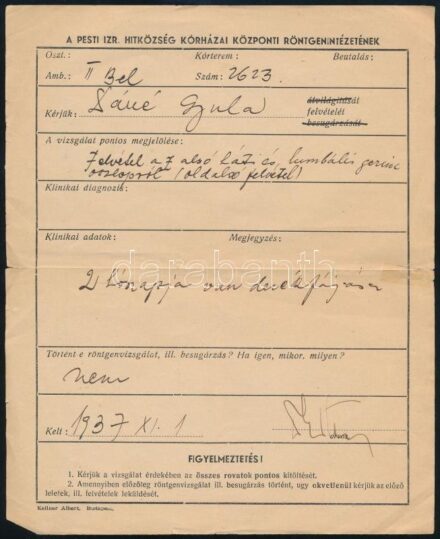 A PESTI IZR. HITKÖZSÉG KÓRHÁZAI KÖZPONTI RÖNTGENINTÉZETÉNEK
Oszt.: Kórterem: Beutalás:
Amb.: II Bel Szám: 2623.
átvilágítását
Kérjük: Gyula felvételét
besugárzását
A vizsgálat pontos megjelölése:
Felvétel a 7 alsó háti és lumbális gerinc
oszlopról (oldalas felvétel)
Klinikai diagnozis:
Klinikai adatok: Megjegyzés:
2 hónapja van derékfájása
darabanth
Történt e röntgenvizsgálat, ill. besugárzás? Ha igen, mikor, milyen?
nem
Kelt: 1937 XI. 1
FIGYELMEZTETÉS!
1. Kérjük a vizsgálat érdekében az összes rovatok pontos kitöltését.
2. Amennyiben előzőleg röntgenvizsgálat ill. besugárzás történt, ugy okvetlenül kérjük az előző
leletek, ill. felvételek leküldését.
Kellner Albert, Budapest.